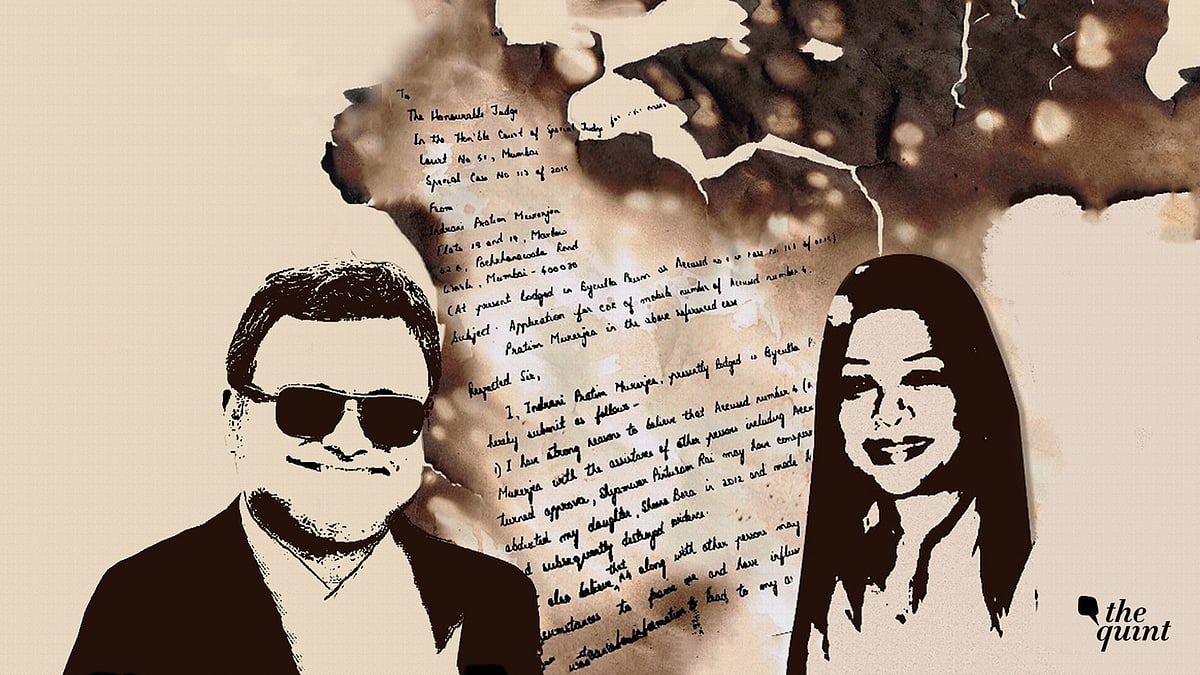 To
The Honourable Judge
In the Hon'ble Court of Special Judge for
Court No 51, Mumbai
Special Case No 112 of 2015
From
Indrani Pratim Mukerjea
Flats 18 and 19, Marlow
62 B, Pochkhanawala Road
Worli, Mumbai - 400030
(At present lodged in Byculla Prison as Accused no 1 in
Subject: Application for CDR of mobile number of Accused number 4.
Pratim Mukerjea in the above referenced case
Respected Sir,
I, Indrani Pratim Mukerjea, presently lodged in Byculla P
hereby submit as follows:-
1) I have strong reasons to believe that Accused number 4 (
Mukerjea with the assistance of other persons including
turned approver, Shyamwar Pinturam Rai may have conspir
abducted my daughter, Sheena Bora in 2012 and made
d subsequently destroyed evidence.
also believe that along with other persons may
circumstances to frame me and have influ
information to lead to my a
the
quint